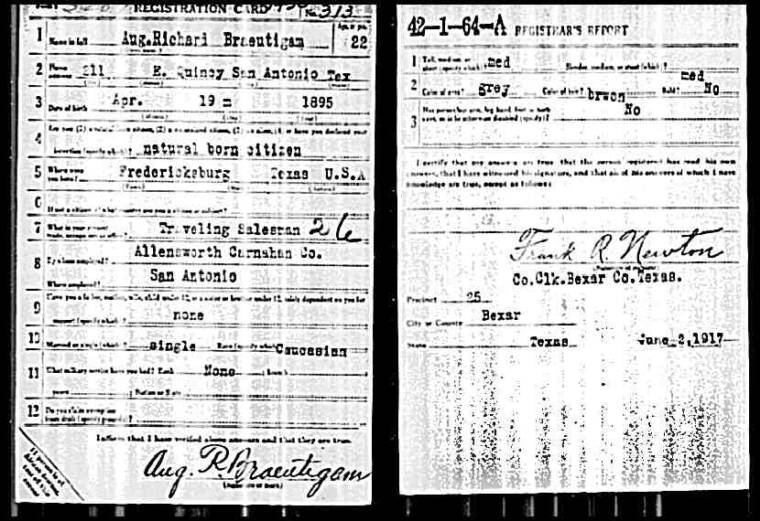 REGISTRATION CARD No. 313
1 Name in full Aug.Richard Braeutigam 22
2 Home address 811 E. Quincy San Antonio Tex
3 Date of birth Apr. 19 1895
4 natural born citizen
5 Where were you born? Fredericksburg Texas U.S.A
6
7 Traveling Salesman 26
8 By whom employed? Allensworth Carnahan Co.
Where employed? San Antonio
9 Have you a father, mother, wife, child under 12, or a sister or brother under 12, solely dependent on you for
support (specify which)? none
10 Married or single (which)? single Race (specify which)? Caucasian
11 What military service have you had? Rank None
years Nation or State
12 Do you claim exemption
from draft (specify grounds)?
I affirm that I have verified above answers and that they are true.
Aug. R. Braeutigam
(Signature or mark)
42-1-64-A REGISTRAR'S REPORT
1 Tall, medium, or short (specify which)? med Slender, medium, or stout (which)? med
2 Color of eyes? grey Color of hair? brwon Bald? No
3 Has person lost arm, leg, hand, foot, or both
eyes, or is he otherwise disabled (specify)? No
I certify that my answers are true, that the person registered has read his own
answers, that I have witnessed his signature, and that all of his answers of which I have
knowledge are true, except as follows:
Frank R. Newton
Co.Clk.Bexar Co.Texas.
Precinct 25
City or County Bexar
State Texas June 2,1917